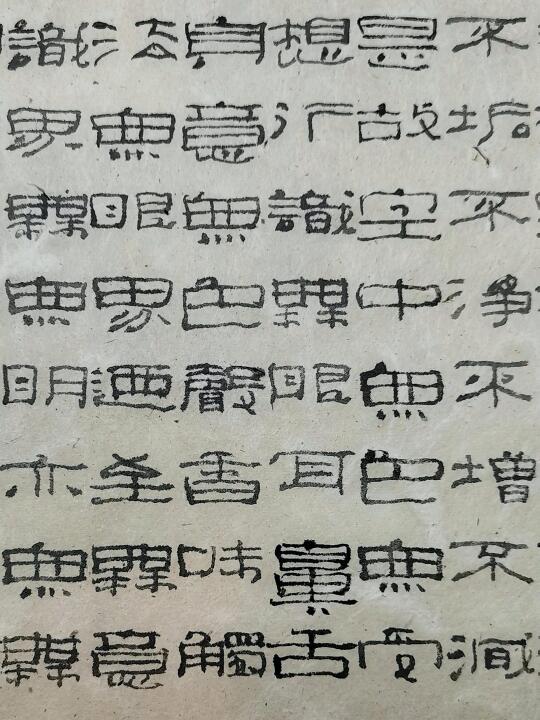 不垢不淨不增不減
是故空中無色無受
想行識橆眼耳鼻舌
身意無色聲香味觸
法無眼界迺至橆意
識界橆無明亦無橆